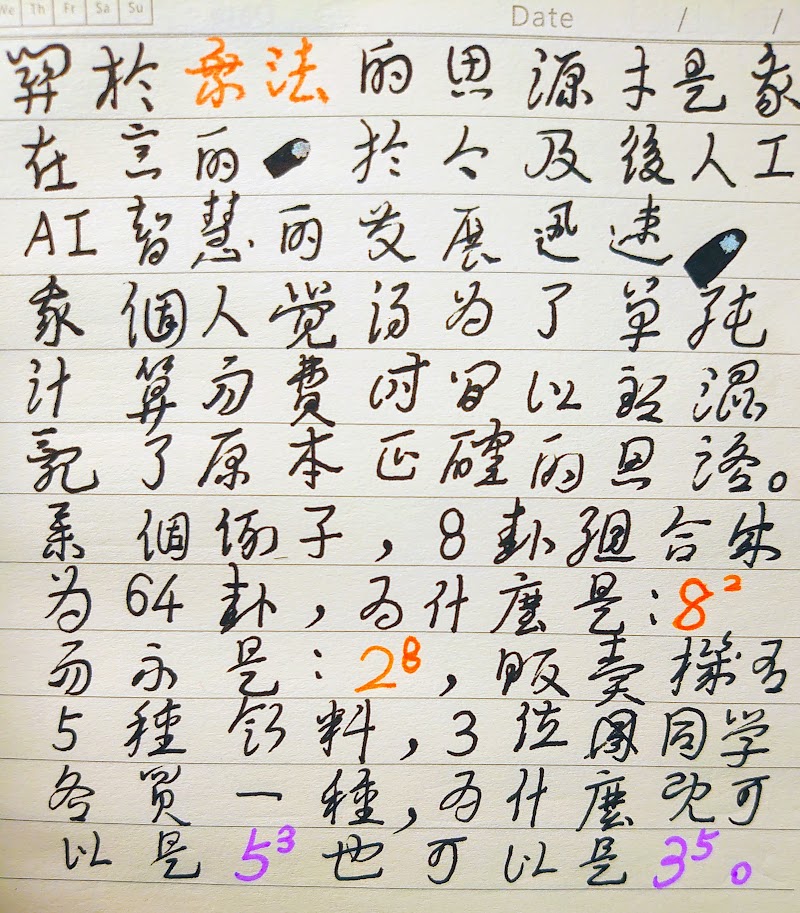 We Th Fr Sa Su
Date / /
關於乘法的思源才是我
在意的 於今及後人工
AI智慧的发展迅速
我個人覺得为了单純
計算而費时间以致混
亂了原本正確的思路。
系個例子，8卦組合成
为64卦，为什麼是：8²
而不是：2⁸，販卖機有
5種飲料，3位男同学
各買一種，为什麼既可
以是5³也可以是3⁵。